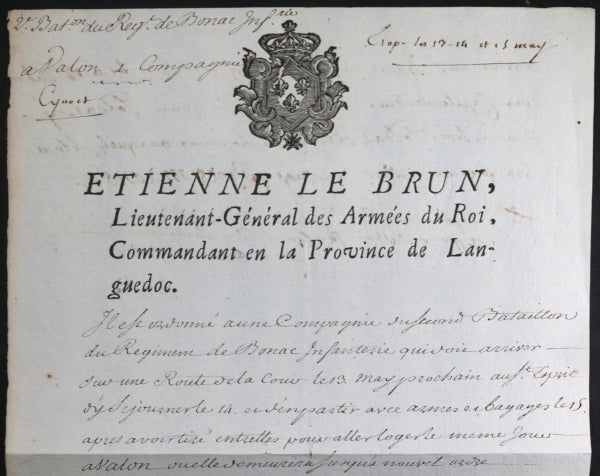 2e. Bat.on du Reg.t de Bonac Inf.rie
a Valon 1 Compagnie
Etap. les 13 - 14 et 15 may
ETIENNE LE BRUN,
Lieutenant-Général des Armées du Roi,
Commandant en la Province de Lan-
guedoc.
Il est ordonné a une Compagnie du second Bataillon
du Regiment de Bonac Infanterie qui doit arriver
sur une Route de la Cour le 13. may prochain au St. Esprit
d'y Sejourner le 14. et d'en partir avec armes et bagages le 15.
apres avoir tiré entr'elles pour aller loger le meme jour
a Valon ou elle demeurera jusqu'a nouvel ordre